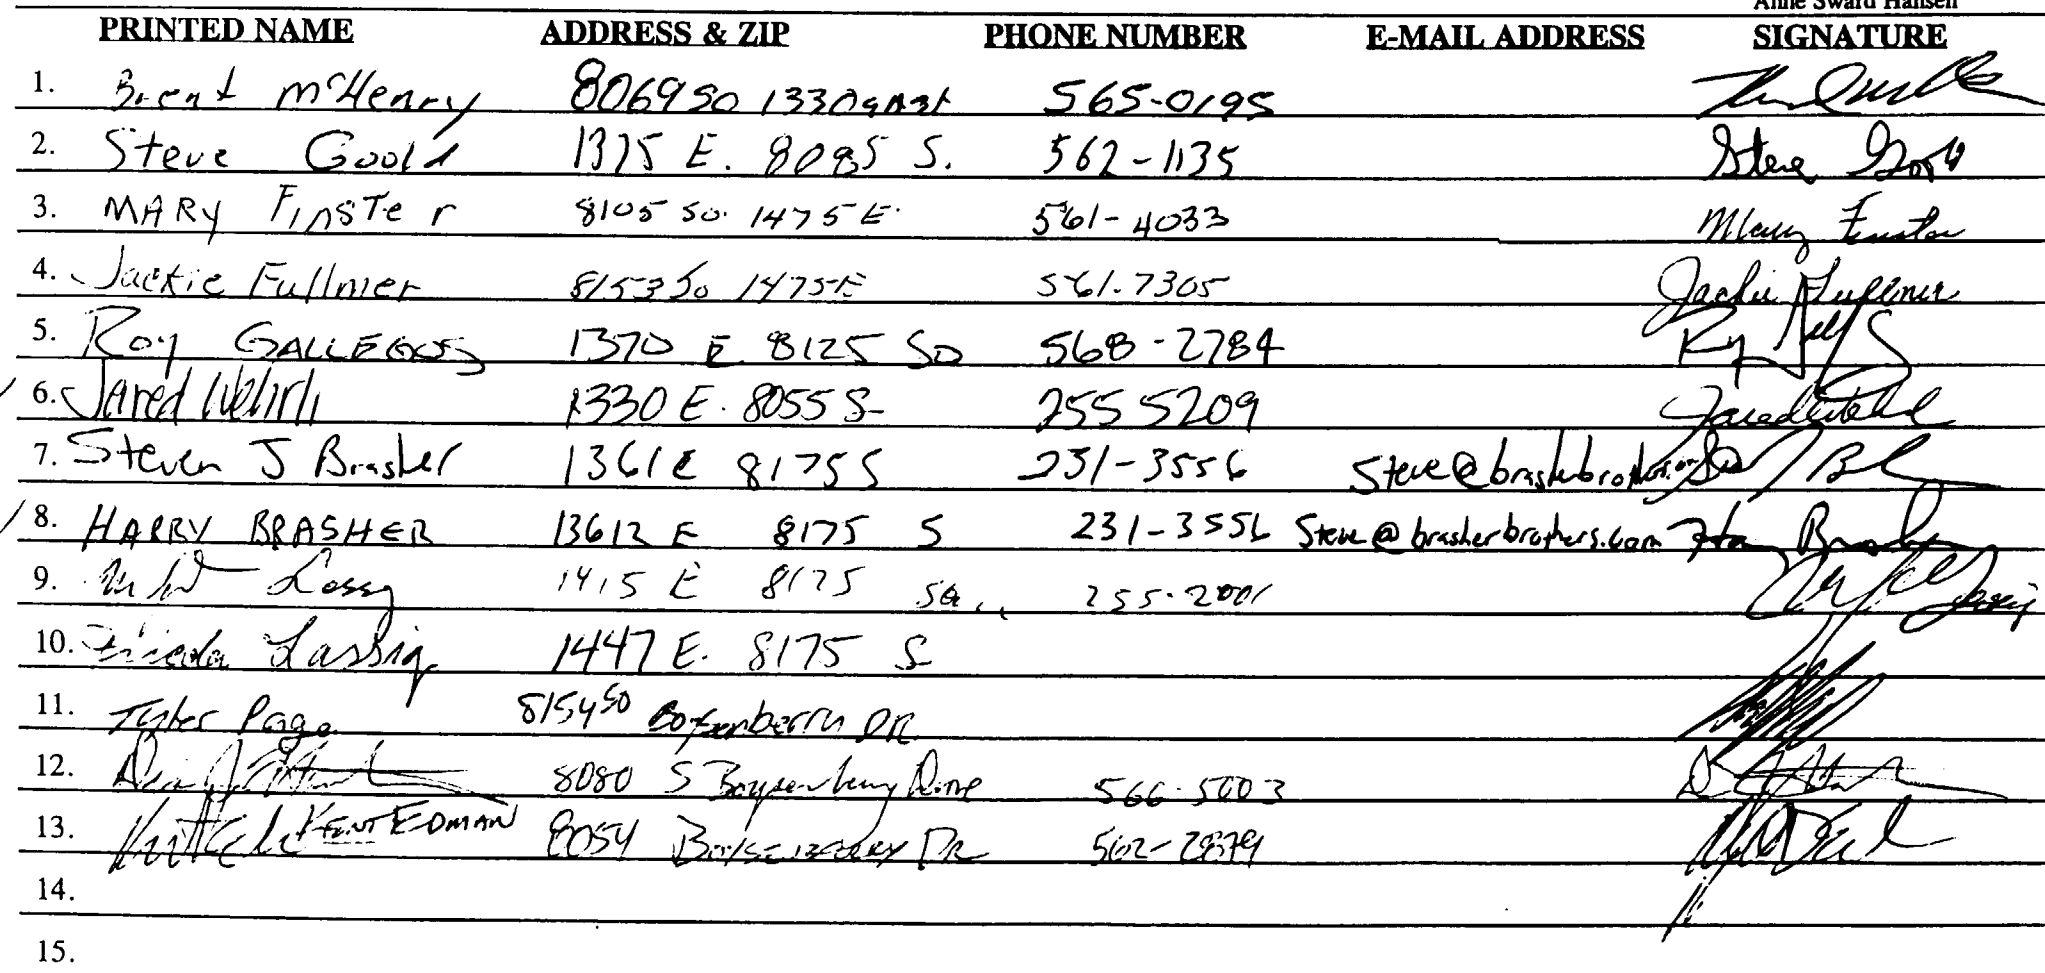 Anne Sward Hansen
PRINTED NAME ADDRESS & ZIP PHONE NUMBER E-MAIL ADDRESS SIGNATURE
1. Brent McHenry 8069 SO 1330 565-0195
2. Steve Goold 1375 E. 8085 S. 562-1135 Steve Goold
3. MARY FINSTer 8105 So. 1475 E. 561-4033 Mary Finster
4. Jackie Fullmer 8153 So 1475 E 561-7305 Jackie Fullmer
5. Roy GALLEGOS 1370 E. 8125 SO 568-2784
6. Jared Wehrli 1330 E. 8055 S- 255 5209
7. Steven J Brasher 1361 E 8175 S 231-3556
8. HARRY BRASHER E 8175 S 231-3556 Steve@brasherbrothers.com
9. 1415 E 8175 So. 255-2001
10. Lassig 1447 E. 8175 S
11. Tyler Page 8154 SO Boysenberry DR.
12. 8080 S Boysenberry Drive
13. KENT EDMAN 8054 Boysenberry DR
14.
15.